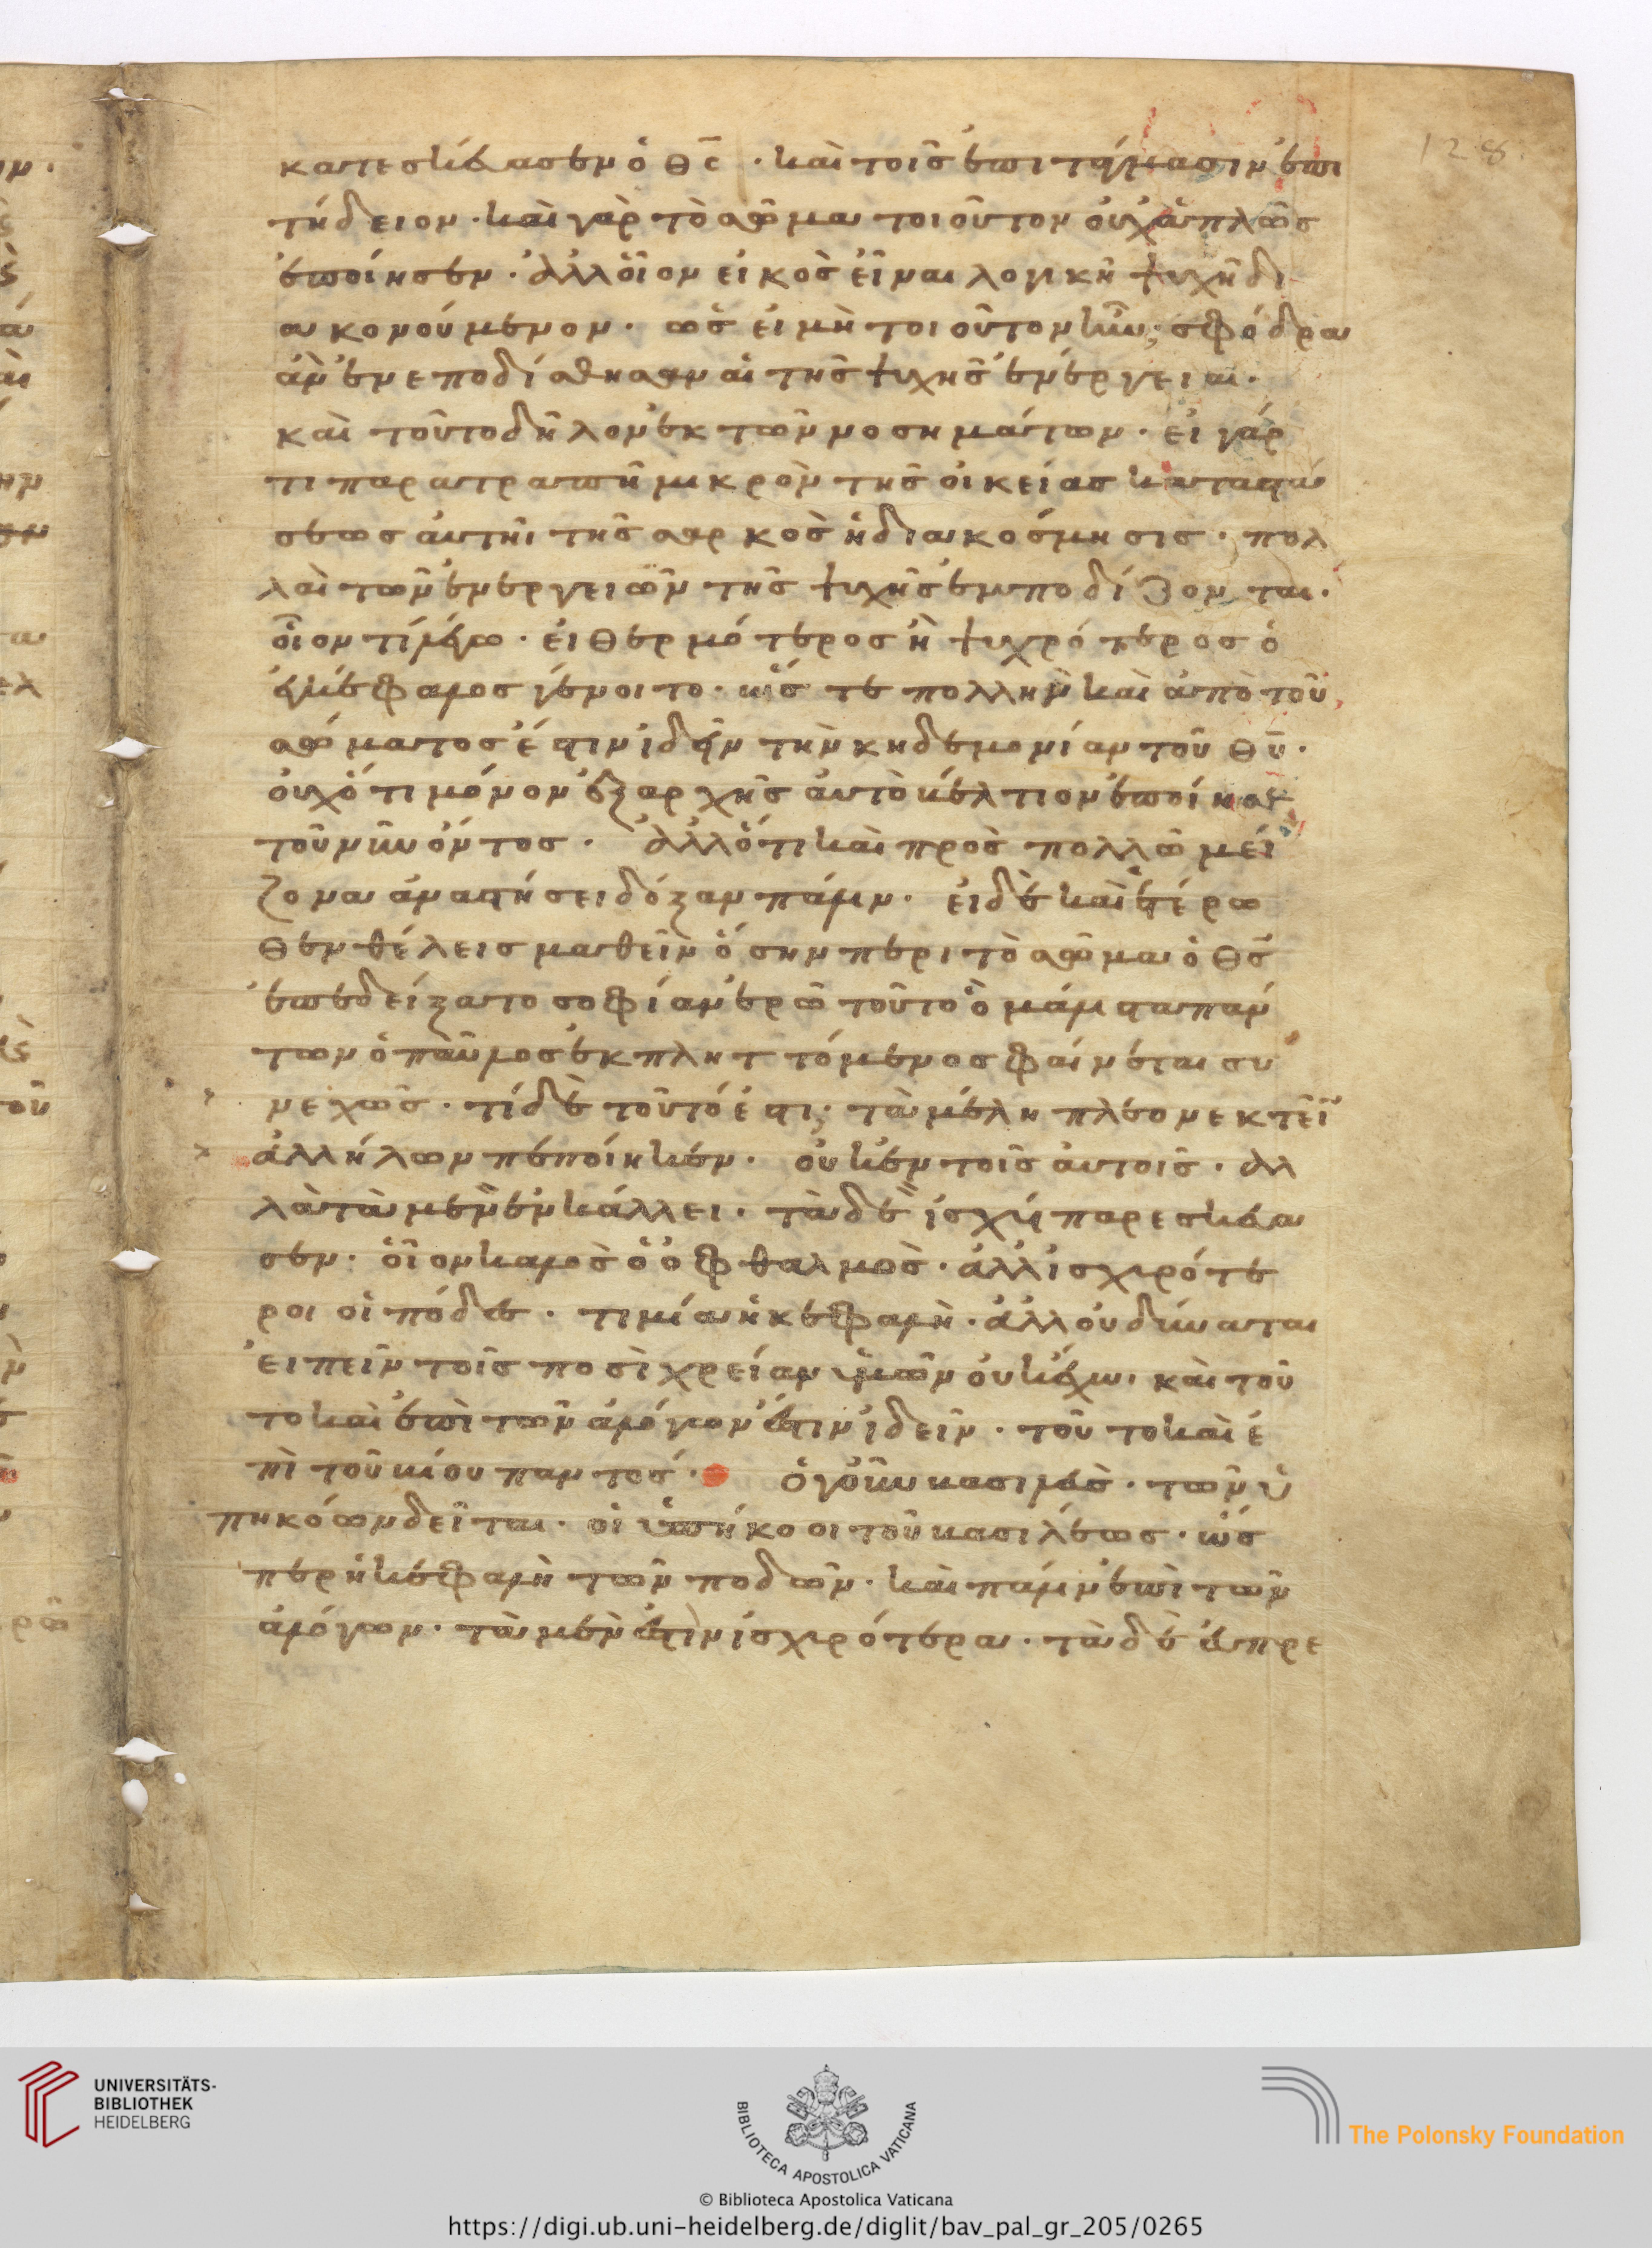 128
κατεσκέυασεν ὁ θς̄ · καὶ τοῖς ἐπιτηδεύμασιν ἐπι
τήδειον · καὶ γὰρ τὸ σῶμα τοιοῦτον οὐχ ἁπλῶς
ἐποίησεν · ἀλλ' οἷον εἰκὸς εἶναι λογικῆ ψυχῆ δι
ακονούμενον · ὡς εἰ μὴ τοιοῦτον ἦν, σφόδρα
ἂν ἐνεποδίσθησαν αἱ τῆς ψυχῆς ἐνέργειαι ·
καὶ τοῦτο δῆλον ἐκ τῶν νοσημάτων · εἰ γάρ
τι παρατραπῆ μικρὸν τῆς οἰκείας καταστά
σεως αὐτηὶ τῆς σαρκὸς ἡ διακόσμησις · πολ
λαὶ τῶν ἐνεργειῶν τῆς ψυχῆς ἐμποδίζονται ·
οἷον τί λέγω · εἰ θερμότερος ἢ ψυχρότερος ὁ
ἐγκέφαλος γένοιτο · ὥς τε πολλὴν καὶ ἀπὸ τοῦ
σώματος ἔστιν ἰδεῖν τὴν κηδεμονίαν τοῦ θῦ ·
οὐχ ὅτι μόνον ἐξ ἀρχῆς αὐτὸ βέλτιον ἐποίησε
τοῦ νῦν ὄντος · ἀλλ' ὅτι καὶ πρὸς πολλῶ μεί
ζονα ἀναστήσει δόξαν πάλιν · εἰ δὲ καὶ ἑτέρω
θεν θέλεις μαθεῖν ὅσην περι τὸ σῶμα ὁ θς̄
ἐπεδείξατο σοφίαν ἐρῶ τοῦτο ὃ μάλιστα πάν
των ὁ παῦλος ἐκπληττόμενος φαίνεται συ
νεχῶς · τί δὲ τοῦτό ἐστι; τὰ μέλη πλεονεκτεῖν
ἀλλήλων πεποίηκεν · οὐκ ἐν τοῖς αὐτοῖς · ἀλ
λὰ τὰ μὲν ἐν κάλλει · τὰ δὲ ἰσχύϊ παρεσκεύα
σεν · οἷον καλὸς ὁ ὀφθαλμὸς · ἀλλ' ἰσχυρότε
ροι οἱ πόδες · τιμία ἡ κεφαλὴ · ἀλλ' οὐ δύναται
εἰπεῖν τοῖς ποσὶ χρείαν ὑμῶν οὐκ ἔχω · καὶ τοῦ
το καὶ ἐπὶ τῶν ἀλόγων ἔστιν ἰδεῖν · τοῦτο καὶ ἐ
πὶ τοῦ βίου παντός · ὁ γοῦν βασιλεὺς · τῶν ὑ
πηκόων δεῖται · οἱ ὑπήκοοι τοῦ βασιλέως · ὥσ
περ ἡ κεφαλὴ τῶν ποδῶν · καὶ πάλιν ἐπὶ τῶν
ἀλόγων · τὰ μὲν ἐστὶν ἰσχυρότερα · τὰ δὲ εὐπρε
UNIVERSITÄTS-
BIBLIOTHEK
HEIDELBERG
BIBLIOTECA APOSTOLICA VATICANA
The Polonsky Foundation
© Biblioteca Apostolica Vaticana
https://digi.ub.uni-heidelberg.de/diglit/bav_pal_gr_205/0265